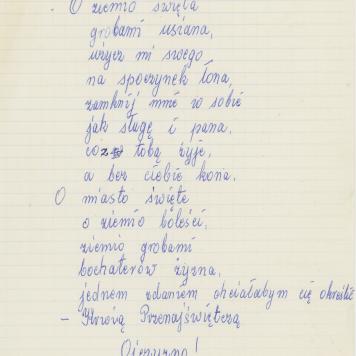 O ziemio święta
grobami usiana,
użycz mi swego
na spoczynek łona,
zamknij mnie w sobie
jak sługę i pana,
co z tobą żyje,
a bez ciebie kona.
O miasto święte
o ziemio boleści,
ziemio grobami
bochaterów żyzna,
jednem zdaniem chciałabym cię określić
- Krwią Przenajświętszą
Ojczyzno!